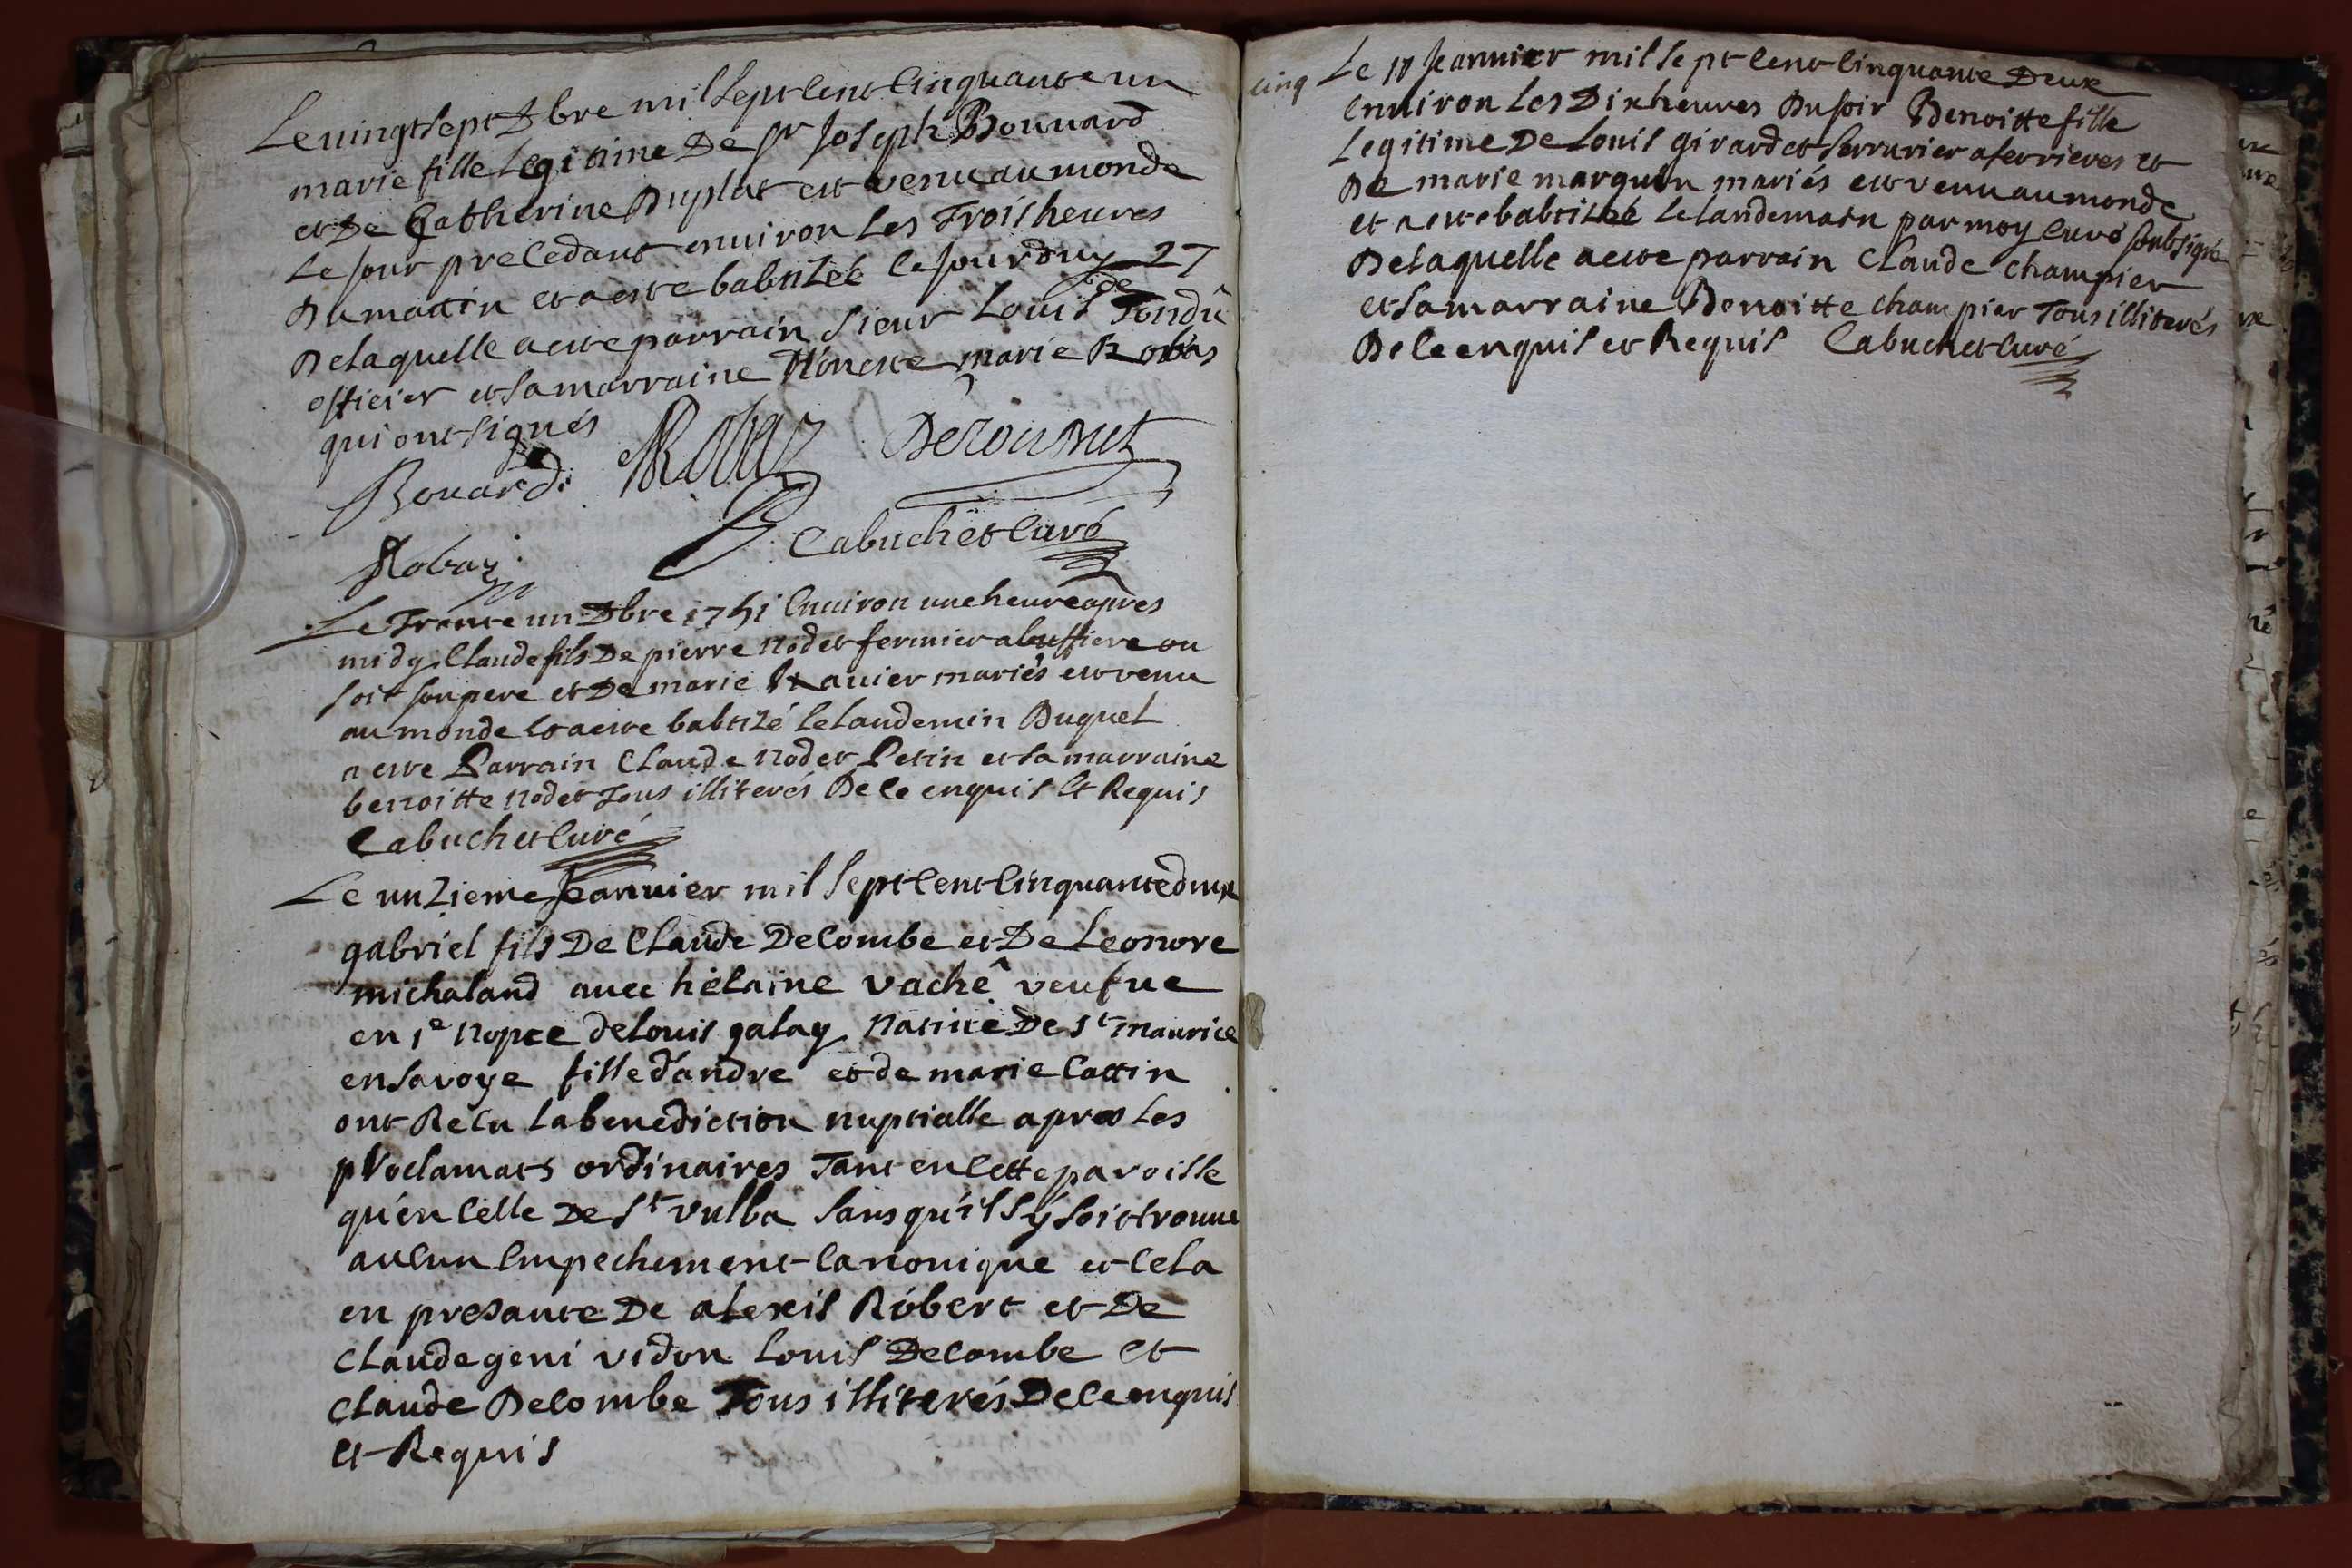 Le vingt sept Xbre mil sept cent cinquante un
marie fille Legitime De Sr Joseph Bouvard
et De Catherine Duplat est venu au monde
Le jour precedant environ Les Trois heures
Du matin et a este babtisée le jourduy 27
De laquelle a este parrain Sieur Louis Tondu
officier et sa marraine Honeste marie Robas
qui ont signés
Bouard. Robaz
Cabuchet Curé
Robaz
Le Trante un Xbre 1751 Environ une heure apres
midy Claude fils De pierre Nodet fermier a bussiere ou
soit son pere et De marie Ravier mariés est venu
au monde et a este babtizé le landemin Duquel
a este Parrain Claude Nodet Petin et sa marraine
benoitte Nodet Tous illiterés De ce enquis Et Requis
Cabuchet Curé
Le unzieme Jeanvier mil sept cent cinquante deux
gabriel fils De Claude Decombe et De Leonore
michaland avec hélaine vaché veufue
en 1e Nopce de Louis galay Natiué De St maurice
en savoye fille d'andre et de marie Cattin
ont Recu La benediction nuptialle apres Les
proclamats ordinaires Tant en Cette paroisse
qu'en Celle De St vulba sans qu'il s'y soit trouue
aucun Empechement Canonique et Cela
en presante De alexis Robert et De
Claude geni vidon Louis Decombe Et
Claude Decombe Tous illiterés De ce enquis
Et Requis
cinq Le 18 Jeanvier mil sept cent Cinquante Deux
Environ Les Dix heures Du soir Benoitte fille
Legitime De Louis girardet serrurier a ferrieres et
De marie marguin mariés est venu au monde
et a este babtisée le landemain par moy Curé soubsigné
De laquelle a este parrain Claude Champier
et sa marraine Benoitte Champier Tous illiterés
De ce enquis et Requis Cabuchet Curé